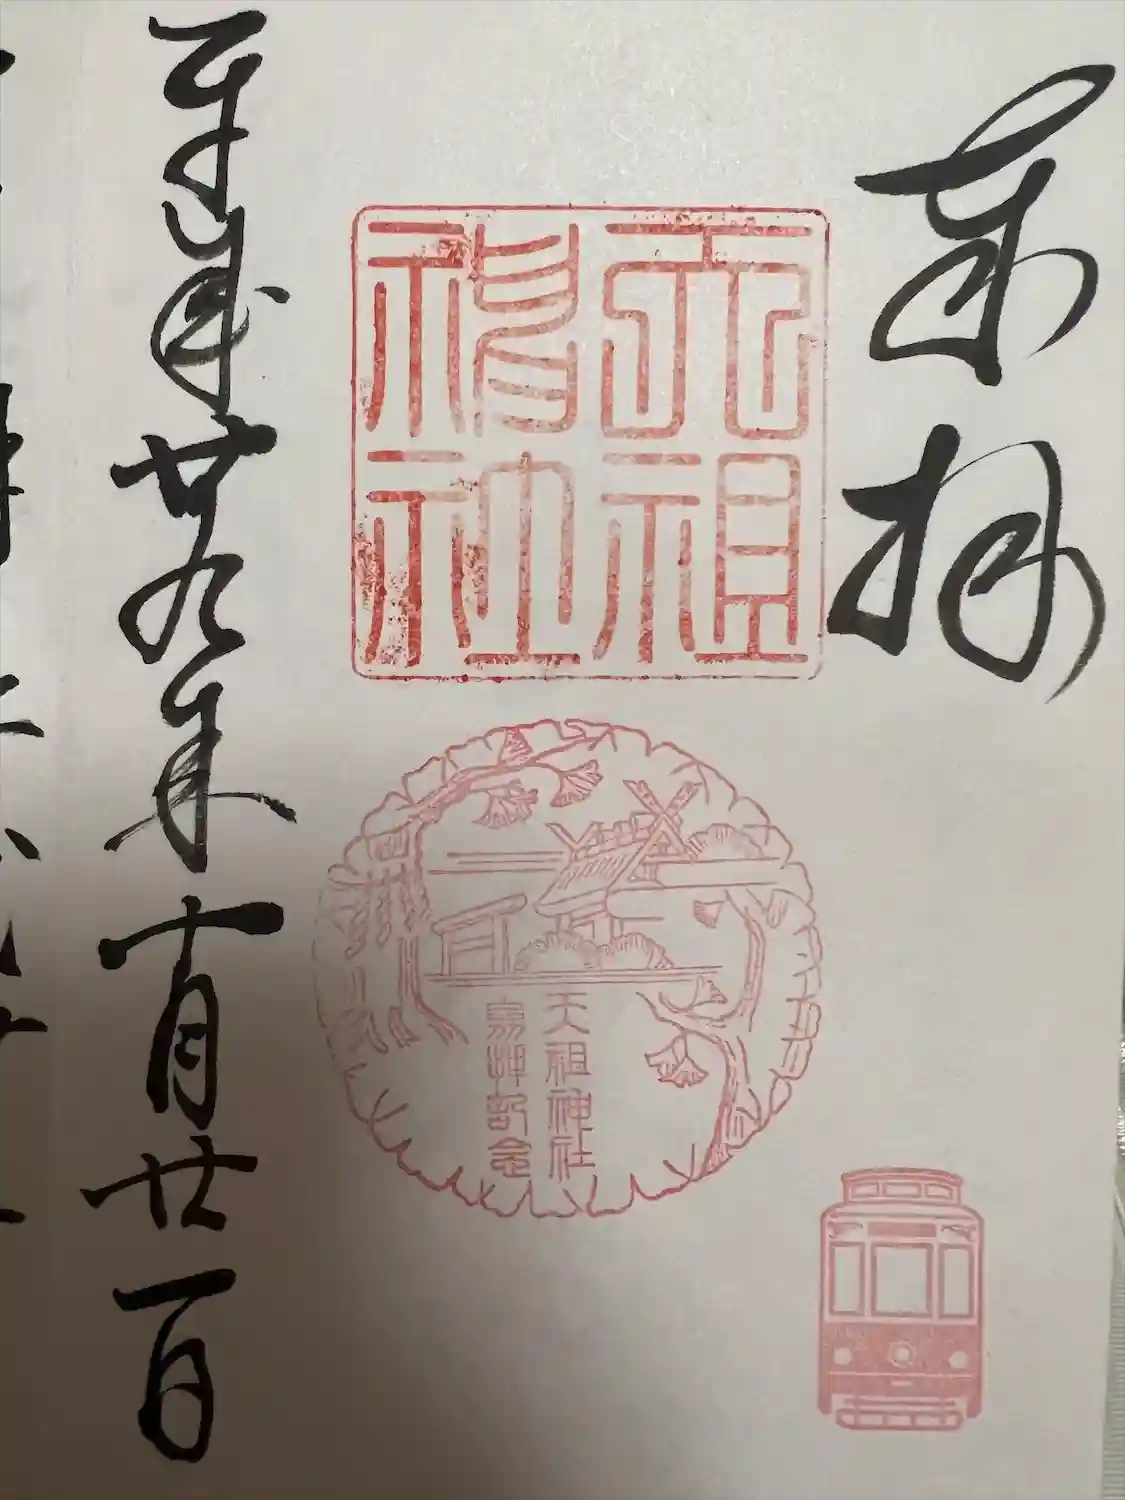 奉拝
天祖
神社
天祖神社
参拝記念
平成廿九年十月廿一日